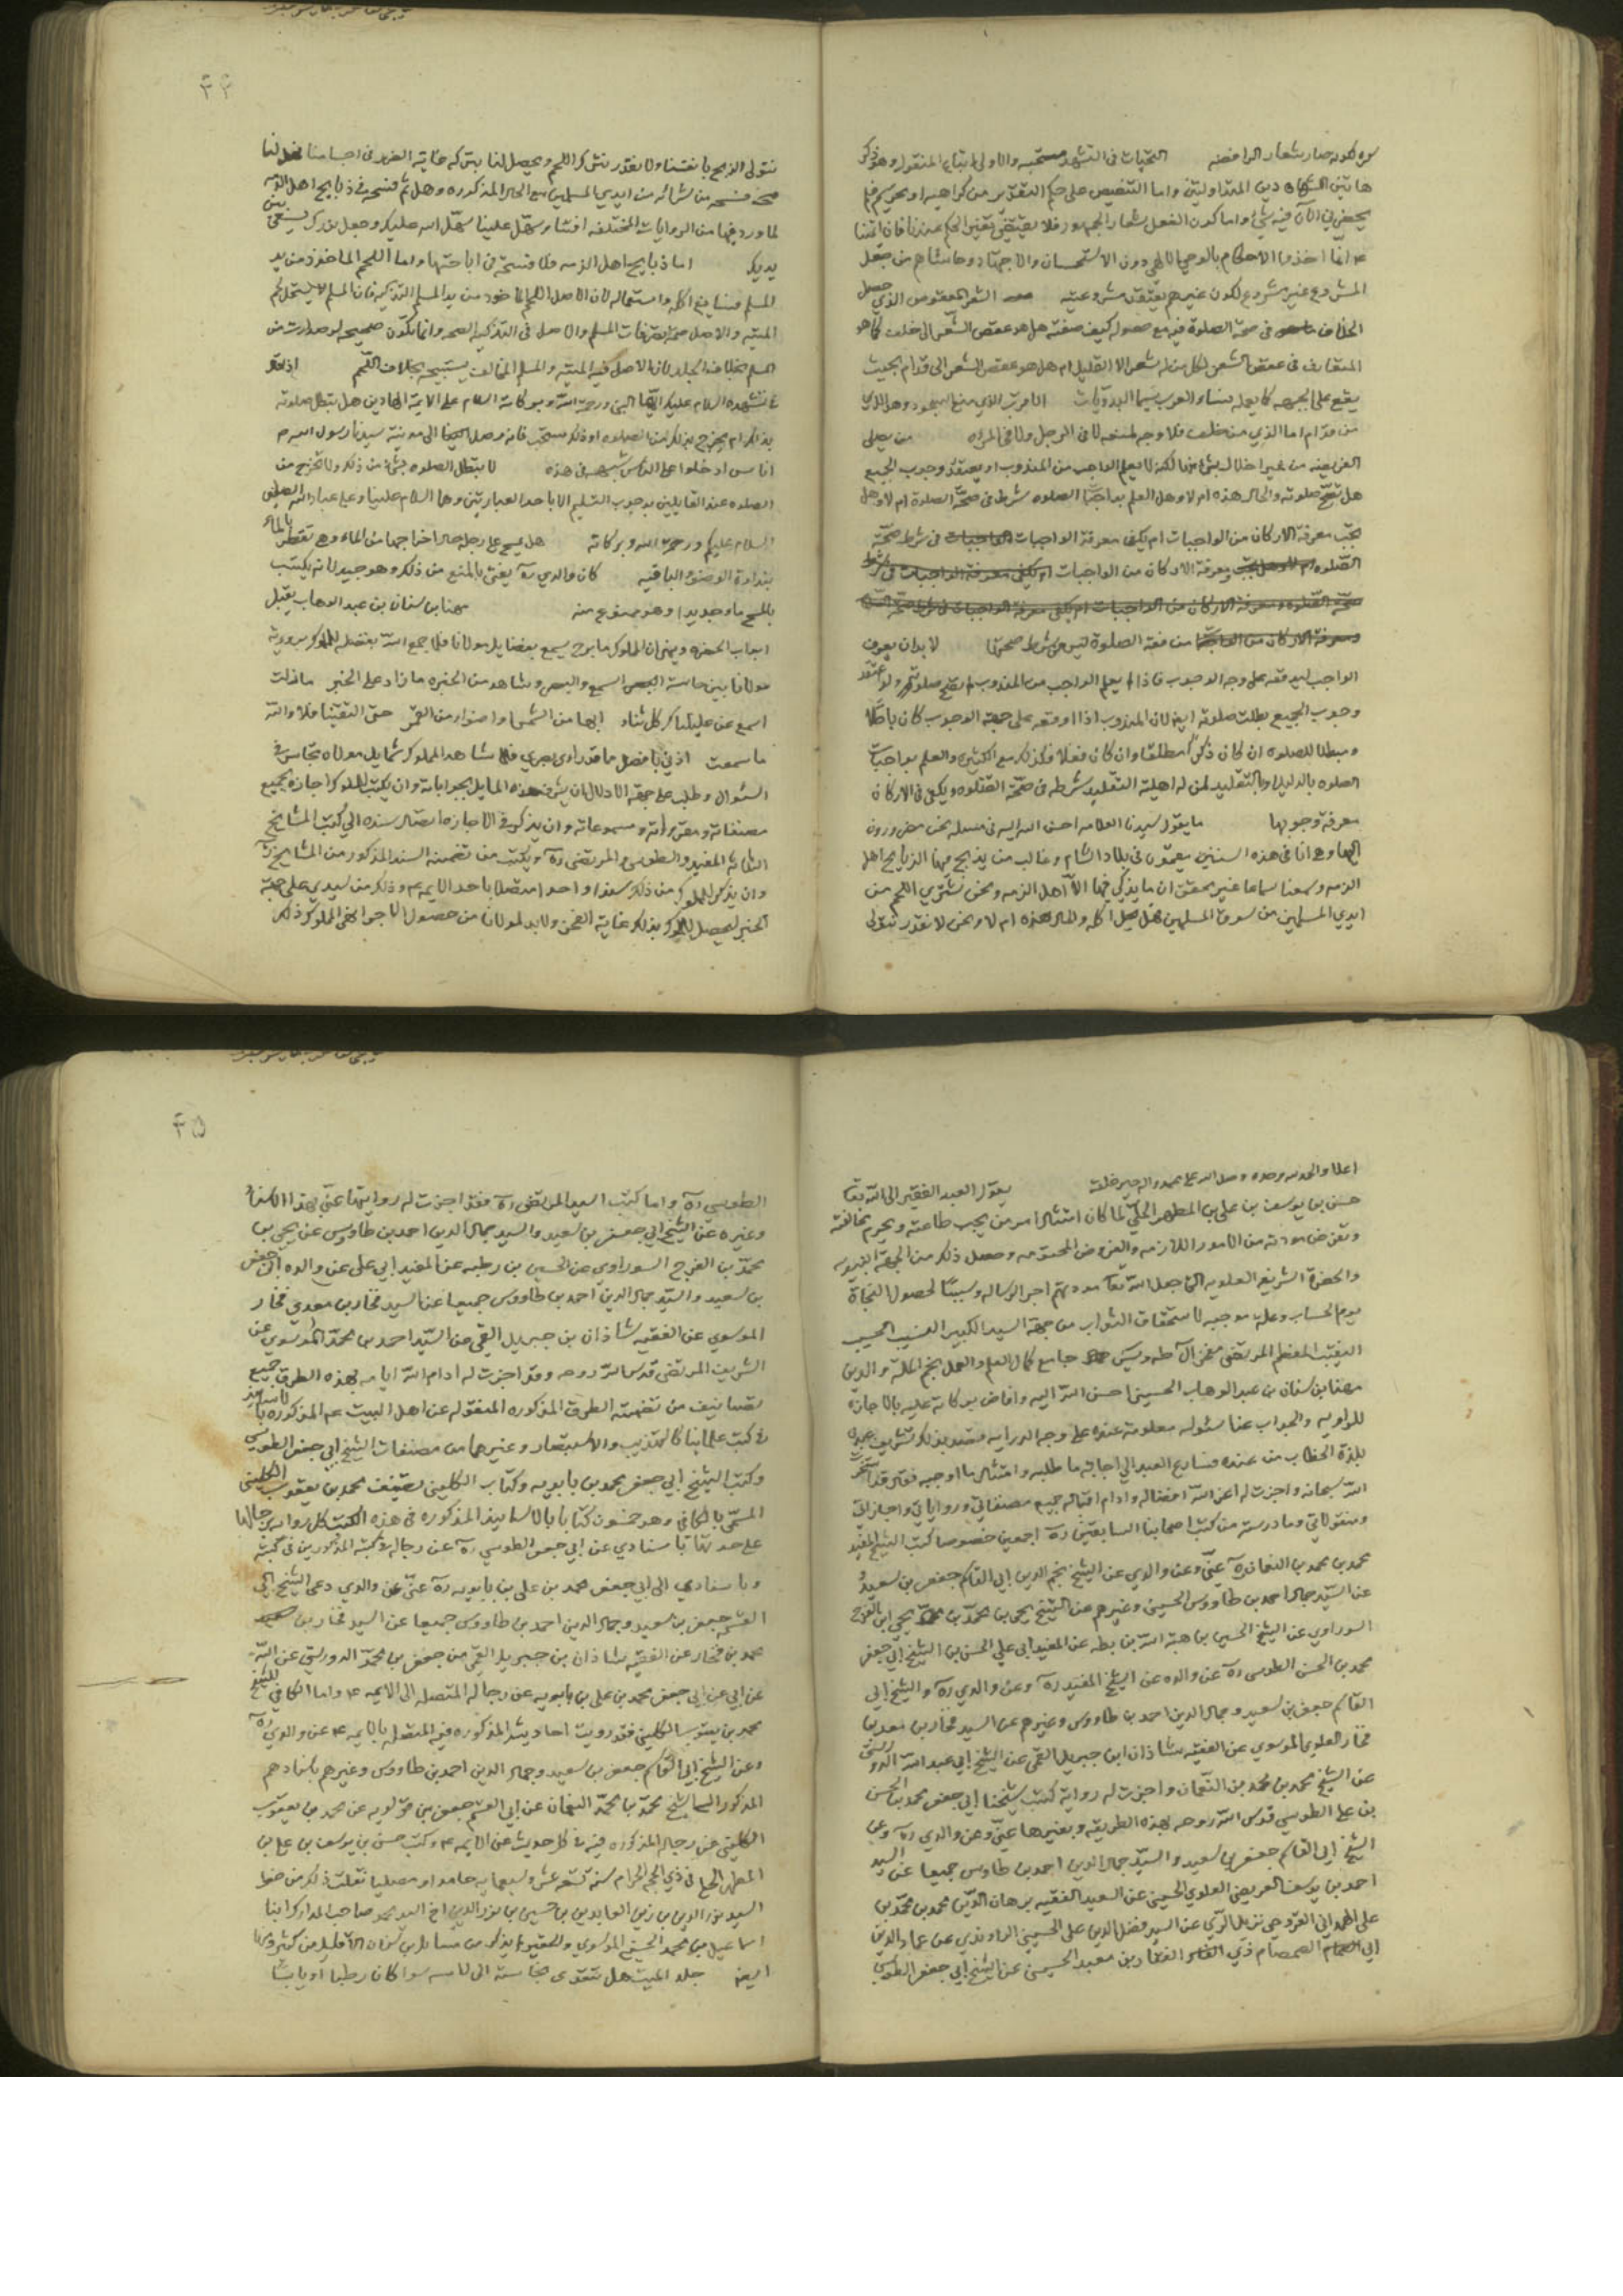 التحيات في التشهد مستحبه والاولى اتباع المنقول وهو ذكر
المشروع غير مشروع لكون غيرهم يعتقدن مشروعيته الشعر المعقوص الذي حصل
المتعارف في عقص الشعر لكل من له شعر الا القليل ام هل هو عقص الشعر الى قدام بحيث
يقع على الجبهه كما يعمله نساء العرب سيما البدويات
من قدام اما الذي من خلف فلا وجه لمنعه لا في الرجل ولا في المراه من يصلي
الفريضه من غير اخلال بشئ منها لكنه لا يعلم الواجب من المندوب او يعتقد وجوب الجميع
هل تصح صلوته والحال هذه ام لا وهل العلم بواجبات الصلوه شرط في صحة الصلوة ام لا وهل
يجب معرفة الاركان من الواجبات ام يكفي معرفة الواجبات في شرط صحة
الصلوه معرفة الاركان من الواجبات
من فقه الصلوة ليس من شرط صحتها لا بد ان يعرف
الواجب ليوقعه على وجه الوجوب فاذا لم يعلم الواجب من المندوب لم تصح صلوته ولو اعتقد
وجوب الجميع بطلت صلوته ايضا لان المندوب اذا اوقعه على جهة الوجوب كان باطلا
ومبطلا للصلوه ان كان ذكرا مطلقا وان كان فعلا فكذلك مع الكثره والعلم بواجبات
الصلوه بالدليل او بالتقليد لمن له اهلية التقليد شرط في صحة الصلوه ويكفي في الاركان
معرفة وجوبها ما يقول سيدنا العلامه احسن الله اليه في مسله نحن مضرورون
اليها وهي انا في هذه السنين مقيمون في بلاد الشام وغالب من يذبح فيها الذبايح اهل
الذمه وسمعنا سماعا غير محقق ان ما يذكي فيها الا اهل الذمه ونحن نشتري اللحم من
ايدي المسلمين من سوق المسلمين هل يحل اكله والحال هذه ام لا ونحن لا نقدر نتولى
۴۴
نتولى الذبح بانفسنا ولا نقدر نترك اللحم ويحصل لنا بتركه غاية الضرر في اجسامنا
من شرائه من ايدي المسلمين مع الحال المذكوره وهل ثم فسحه في ذبايح اهل الذمه
لما ورد فيها من الروايات المختلفه افتنا وسهل علينا سهل الله عليك وجعل نورك يسعى بين
يديك اما ذبايح اهل الذمه فلا فسحة في اباحتها واما اللحم الماخوذ من يد
المسلم فسايغ اكله واستعماله لان الاصل اللحم الماخوذ من يد المسلم التذكيه فان المسلم لا يستحل لحم
الميته والاصل صحة تصرفات المسلم والاصل في التذكيه الصحه وانما تكون صحيحه لو صدرت من
المسلم بخلاف الجلد لان الاصل فيه الميته والمسلم المخالف يستبيحه بخلاف اللحم
في تشهده السلام عليك ايها النبي ورحمة الله وبركاته السلام على الايمة الهادين هل تبطل صلوته
بذلك ام يخرج بذلك من الصلوه او ذلك مستحب
لا تبطل الصلوه بشئ من ذلك ولا تخرج من
الصلوه عند القايلين بوجوب التسليم الا باحد العبارتين وهما السلام علينا وعلى عباد الله الصالحين
السلام عليكم ورحمة الله وبركاته هل يمسح على رجله حال اخراجها من الماء وهي تقطر بالماء
بنداوة الوضوء الباقيه كان والدي ره يفتي بالمنع من ذلك وهو جيد لانه يكتسب
بالمسح ماء جديدا وهو ممنوع منه مهنا بن سنان بن عبد الوهاب يقبل
مولانا بين حاسة السمع والبصر وشاهد من الخبره ما زاد على الخبر ما زلت
اسمع عن عليائكم كل ثناء ابهى من الشمس او اضواء من القمر حتى التقينا فلا والله
ما سمعت اذني بافضل مما قد راى بصري فلما شاهد المملوك شمايل مولاه تجاسر في
السئوال وطلب على جهة الادلال ان يشرف هذه المسايل بجواباته وان يكتب للمملوك اجازه بجميع
مصنفاته ومقرواته ومسموعاته وان يذكر في الاجازه اتصال سنده الى كتب المشايخ
الثلاثه المفيد والطوسي والمرتضى ره ويكتب من تضمنه السند المذكور من المشايخ ره
وان يذكر للمملوك من ذلك سندا واحدا متصلا باحد الايمه ع وذلك من سيدي على جهة
الخير ليحصل للمملوك بذلك غاية الفخر ولا بد لمولانا من حصول الاجر
يقول العبد الفقير الى الله تعالى
حسن بن يوسف بن علي بن المطهر الحلي لما كان امتثال امر من يجب طاعته ويحرم مخالفته
وتفرض مودته من الامور اللازمه والفروض المحتومه وحصل ذلك من الجهة النبويه
والحضرة الشريفه العلويه التي جعل الله تعالى مودتهم اجر الرساله وسببا لحصول النجاة
يوم الحساب وعلة موجبه لاستحقاق الثواب من جهة السيد الكبير النسيب الحسيب
النقيب المعظم المرتضى مفخر آل طه ويس جامع كمال العلم والعمل نجم الملة والدين
مهنا بن سنان بن عبد الوهاب الحسيني احسن الله اليه وافاض بركاته عليه بالاجازه
للراويه والجواب عما سئوله معلومة عنده على وجه الدرايه فقصد بذلك تشريف عبده
بلذة الخطاب من عنده فسارع العبد الى اجابة ما طلبه وامتثال ما اوجبه فقال قد استخرت
الله سبحانه واجزت له اعز الله افضاله وادام اقباله جميع مصنفاتي ورواياتي واجازاتي
ومنقولاتي وما درسته من كتب اصحابنا السابقين ره اجمعين خصوصا كتب الشيخ المفيد
محمد بن محمد بن النعمان ره عني وعن والدي عن الشيخ نجم الدين ابي القاسم جعفر بن سعيد
عن السيد جمال احمد بن طاووس الحسيني وغيرهم عن الشيخ يحيى بن محمد بن يحيى ابن الفرج
السوراوي عن الشيخ الحسين بن هبة الله بن رطبه عن المفيد ابي علي الحسن بن الشيخ ابي جعفر
محمد بن الحسن الطوسي ره عن والده عن الشيخ المفيد ره وعن والدي ره والشيخ ابي
القاسم جعفر بن سعيد وجمال الدين احمد بن طاووس وغيرهم عن السيد فخار بن معد بن
فخار العلوي الموسوي عن الفقيه شاذان ابن جبريل القمي عن الشيخ ابي عبد الله الدوريستي
عن الشيخ محمد بن محمد بن النعمان واجزت له رواية كتب شيخنا ابي جعفر محمد بن الحسن
بن علي الطوسي قدس الله روحه بهذه الطريقه وبغيرها عني وعن والدي ره وعن
الشيخ ابي القاسم جعفر بن سعيد والسيد جمال الدين احمد بن طاوس جميعا عن السيد
احمد بن يوسف العريضي العلوي الحسيني عن السعيد الفقيه برهان الدين محمد بن محمد بن
علي الحمداني القزويني نزيل الري عن السيد فضل الدين علي الحسيني الراوندي عن عماد الدين
ابي الصمصام ذي الفقار بن معبد الحسيني عن الشيخ ابي جعفر الطوسي
۴۵
الطوسي ره واما كتب السيد المرتضى ره فقد اجزت له روايتها عني بهذا الاسناد
وغيره عن الشيخ ابي جعفر بن سعيد والسيد جمال الدين احمد بن طاووس عن يحيى بن
محمد بن الفرج السوراوي عن الحسين بن رطبه عن المفيد ابي علي عن والده ابي جعفر
بن سعيد والسيد جمال الدين احمد بن طاووس جميعا عن السيد فخار بن معد بن فخار
الموسوي عن الفقيه شاذان بن جبريل القمي عن السيد احمد بن محمد الموسوي عن
الشريف المرتضى قدس الله روحه وقد اجزت له ادام الله ايامه بهذه الطرق جميع
تصانيف من تضمنته الطرق المذكوره المنقوله عن اهل البيت ع المذكوره بالاسانيد
في كتب علمائنا كالتهذيب والاستبصار وغيرهما من مصنفات الشيخ ابي جعفر الطوسي
وكتب الشيخ ابي جعفر محمد بن بابويه وكتاب الكليني تصنيف محمد بن يعقوب الكليني
المسمى بالكافي وهو خمسون كتابا بالاسانيد المذكوره في هذه الكتب كل روايه برجالها
على حدتها باسنادي عن ابي جعفر الطوسي ره عن رجاله في كتبه
وباسنادي الى ابي جعفر محمد بن علي بن بابويه ره عني عن والدي وعن الشيخ ابي
القسم جعفر بن سعيد وجمال الدين احمد بن طاووس جميعا عن السيد فخار بن
معد بن فخار عن الفقيه شاذان بن جبريل القمي عن جعفر بن محمد الدوريستي عن ابيه
عن ابي جعفر محمد بن علي بن بابويه عن رجاله المتصله الى الايمه ع واما الكافي للشيخ
محمد بن يعقوب الكليني فقد رويت احاديثه المذكوره فيه المتصله بالايمه ع عن والدي ره
وعن الشيخ ابي القاسم جعفر بن سعيد وجمال الدين احمد بن طاووس وغيرهم باسنادهم
المذكور الى الشيخ محمد بن محمد النعمان عن ابي القسم جعفر بن قولويه عن محمد بن يعقوب
الكليني عن رجاله المذكوره فيه في كل حديث عن الايمه ع وكتب حسن بن يوسف بن علي بن
المطهر الحلي في ذي الحجه الحرام سنة تسعه عشر وسبعمايه حامدا ومصليا نقلت ذلك من خط
السيد نور الدين بن زين العابدين بن حسين بن نور الدين اخ السيد محمد صاحب المدارك
جلد الميت هل تتعدى نجاسته الى لامسه سوا كان رطبا او يابسا